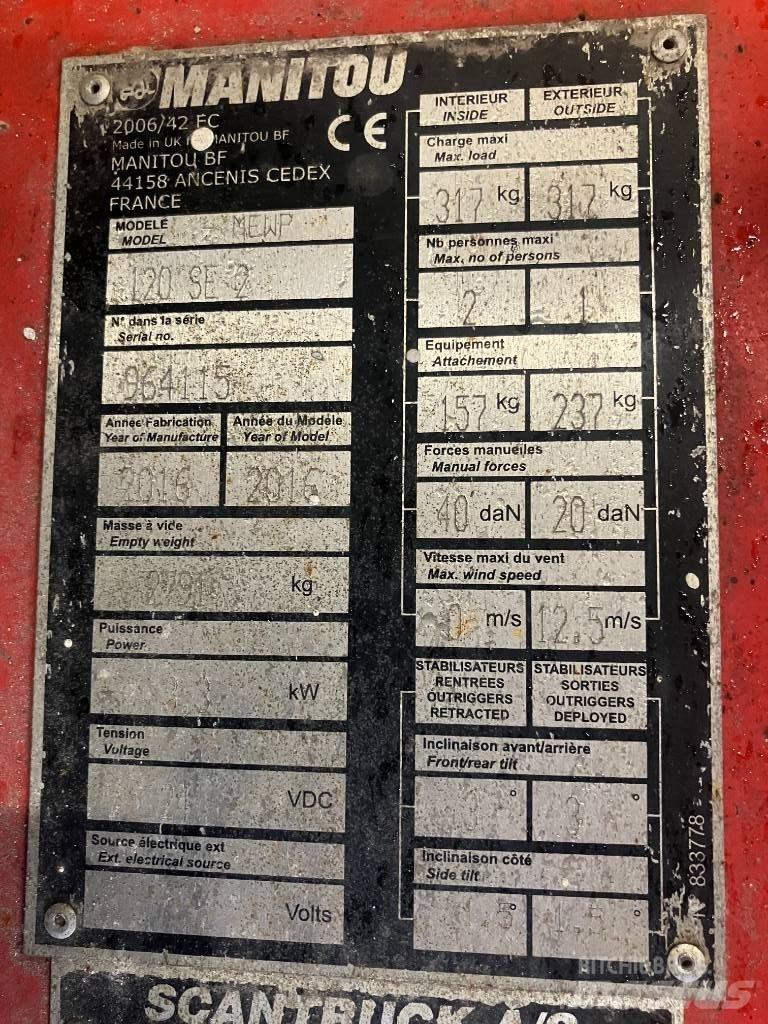 MANITOU
2006/42 EC
Made in UK MANITOU BF
MANITOU BF
44158 ANCENIS CEDEX
FRANCE
CE
MODELE
MODEL
MEWP
120 SE 2
N° dans la série
Serial no.
964115
Année Fabrication
Year of Manufacture
Année du Modèle
Year of Model
2016
2016
Masse à vide
Empty weight
kg
Puissance
Power
kW
Tension
Voltage
VDC
Source électrique ext
Ext. electrical source
Volts
INTERIEUR
INSIDE
EXTERIEUR
OUTSIDE
Charge maxi
Max. load
317 kg
317 kg
Nb personnes maxi
Max. no of persons
2
1
Equipement
Attachement
157 kg
237 kg
Forces manuelles
Manual forces
40 daN
20 daN
Vitesse maxi du vent
Max. wind speed
0 m/s
12.5 m/s
STABILISATEURS
RENTREES
OUTRIGGERS
RETRACTED
STABILISATEURS
SORTIES
OUTRIGGERS
DEPLOYED
Inclinaison avant/arrière
Front/rear tilt
3 °
3 °
Inclinaison côté
Side tilt
1.5 °
1.5 °
N° 833778
SCANTRUCK A/S